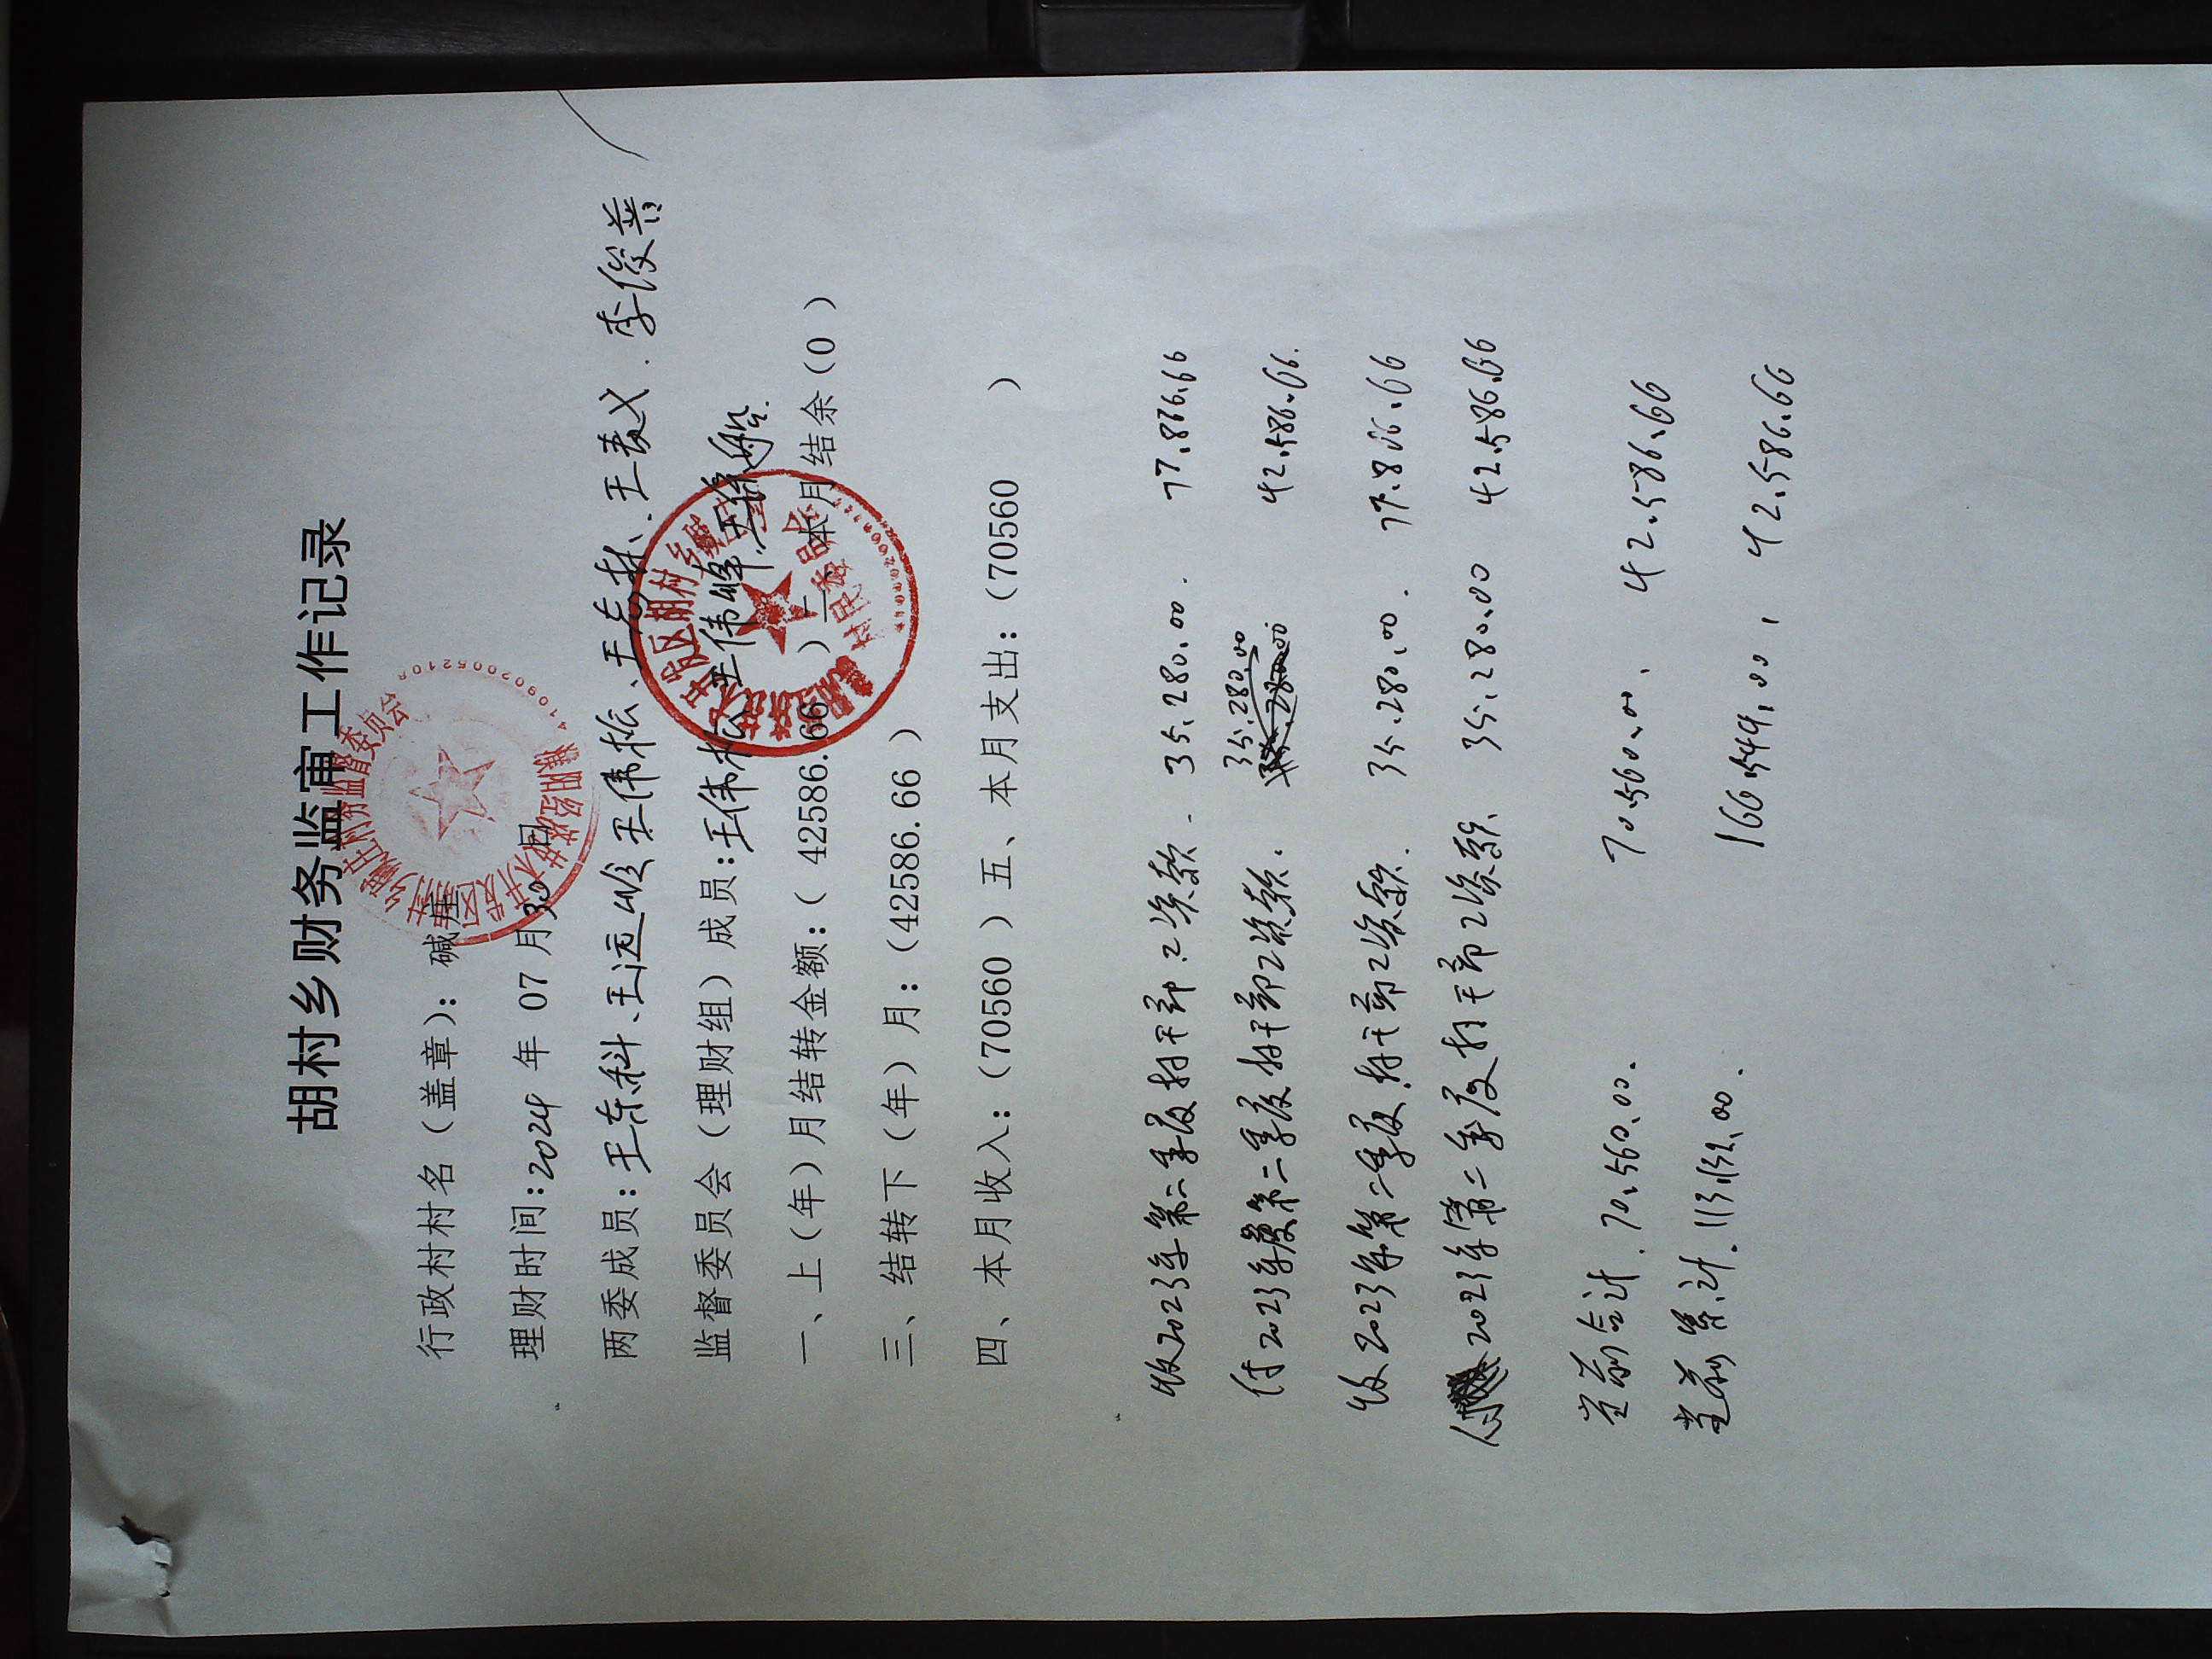 胡村乡财务监审工作记录
行政村村名（盖章）：碱庙
理财时间：2024 年 07 月 30 日
两委成员：王东科、王远峻 王伟松、王志林、王表义、李俊普
监督委员会（理财组）成员：王伟松 王伟峰、王
一、上（年）月结转金额：（ 42586.66 ）二、本月结余（0 ）
三、结转下（年）月：（42586.66 ）
四、本月收入：（70560 ）五、本月支出：（70560 ）
收2023年第二季度村干部工资款. 35.280.00. 77.866.66
付2023年度第二季度村干部工资款. 35.280.00 42.586.66.
收2023年第二季度村干部工资款. 35.280.00. 77.866.66
付2023年第二季度村干部工资款. 35.280.00 42.586.66
当前合计. 70.560.00. 70.560.00. 42.586.66
当前累计. 113.132.00. 166.544.00. 42.586.66